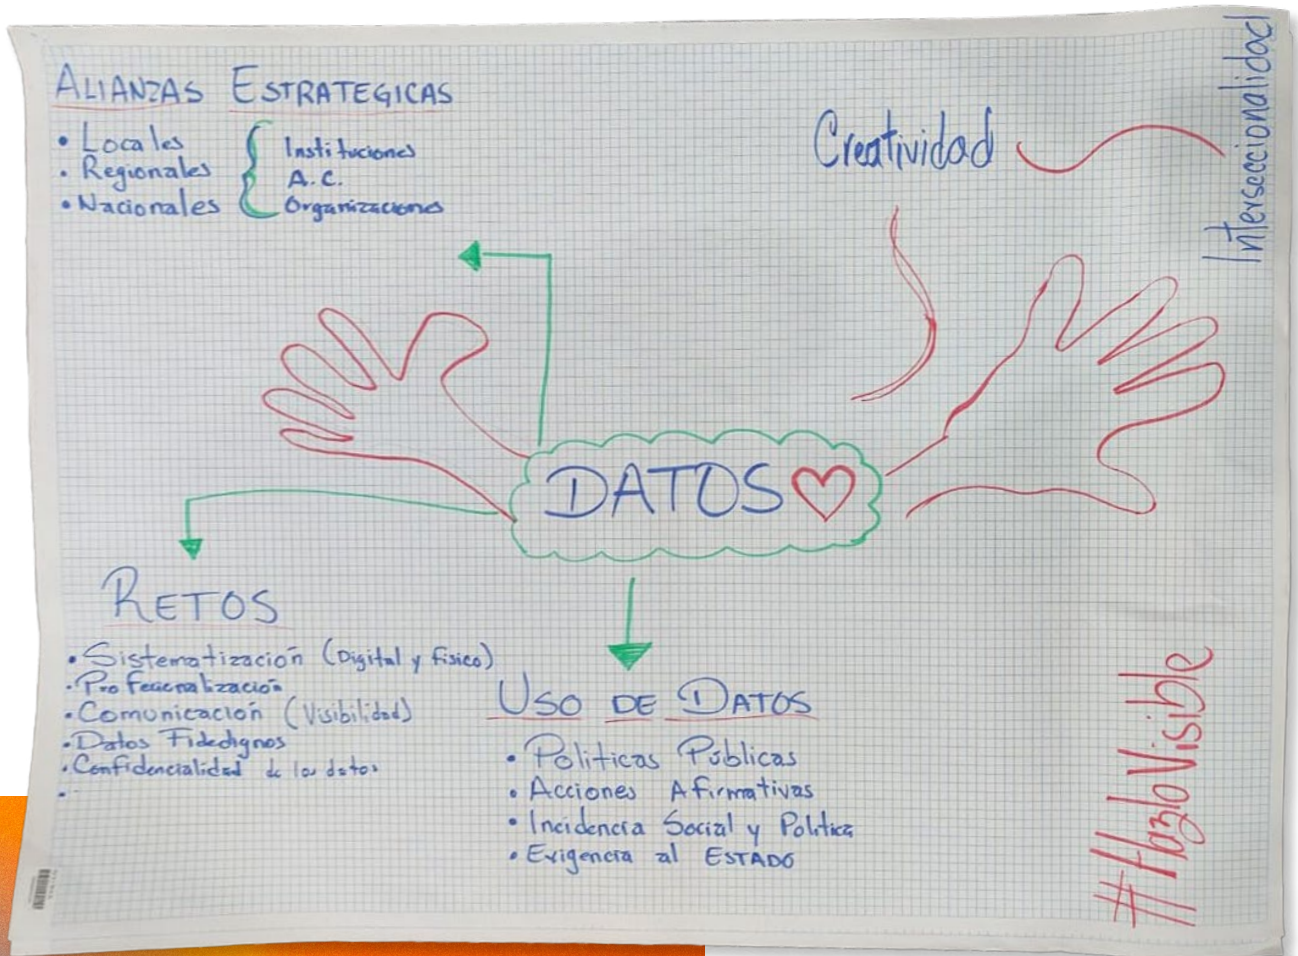 ALIANZAS ESTRATEGICAS
• Locales
• Regionales
• Nacionales
Instituciones
A.C.
Organizaciones
Creatividad
Interseccionalidad
DATOS
RETOS
• Sistematización (Digital y físico)
• Profecionalización
• Comunicación (Visibilidad)
• Datos Fidedignos
• Confidencialidad de los datos
•
USO DE DATOS
• Politicas Públicas
• Acciones Afirmativas
• Incidencia Social y Politica
• Exigencia al ESTADO
#HazloVisible